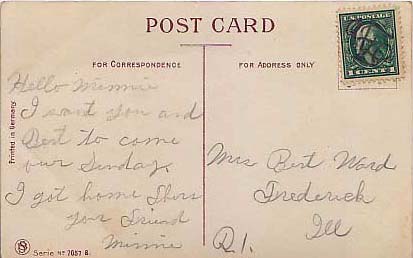 POST CARD
FOR CORRESPONDENCE
FOR ADDRESS ONLY
U.S. POSTAGE
1 CENT 1
Printed in Germany
Hello Minnie
I want you and
Bert to come
our Sunday
I got home Thurs
your Friend
Minnie
Mrs Bert Ward
Frederick
Ill
R1.
Serie No 7057 B.